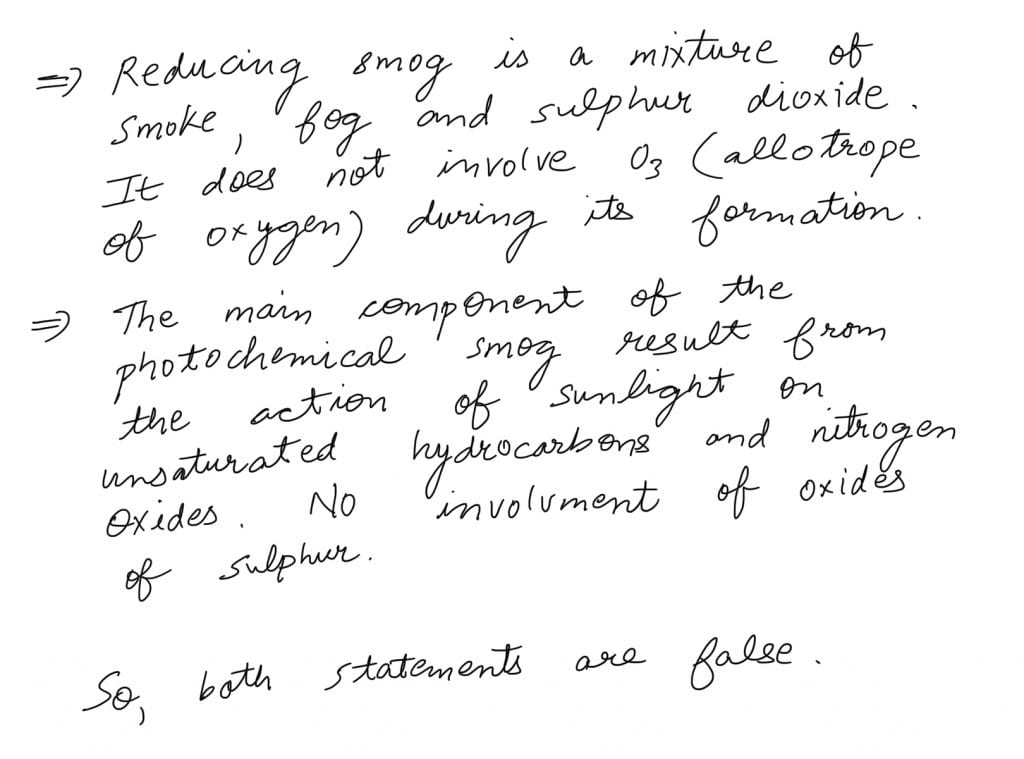 ⇒ Reducing smog is a mixture of
smoke, fog and sulphur dioxide.
It does not involve O₃ (allotrope
of oxygen) during its formation.
⇒ The main component of the
photochemical smog result from
the action of sunlight on
unsaturated hydrocarbons and nitrogen
oxides. No involvment of oxides
of sulphur.
So, both statements are false.